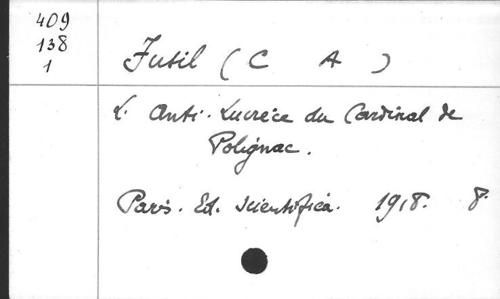 409
138
1
Fusil (C A)
L. Anti-Lucrèce du Cardinal de
Polignac.
Paris. Ed. Scientifica. 1918. 8.